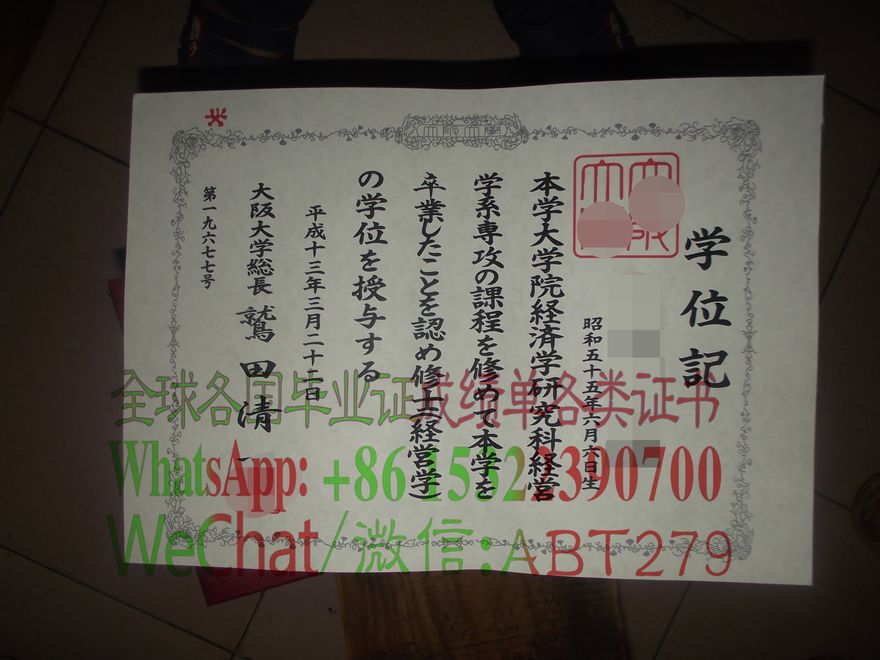 学位記
昭和五十五年六月六日生
本学大学院経済学研究科経営
学系専攻の課程を修めて本学を
卒業したことを認め修士(経営学)
の学位を授与する
平成十三年三月二十二日
大阪大学総長 鷲田清一
第一九六七七号
全球各国毕业证成绩单各类证书
WhatsApp: +86
WeChat/微信:ABT279